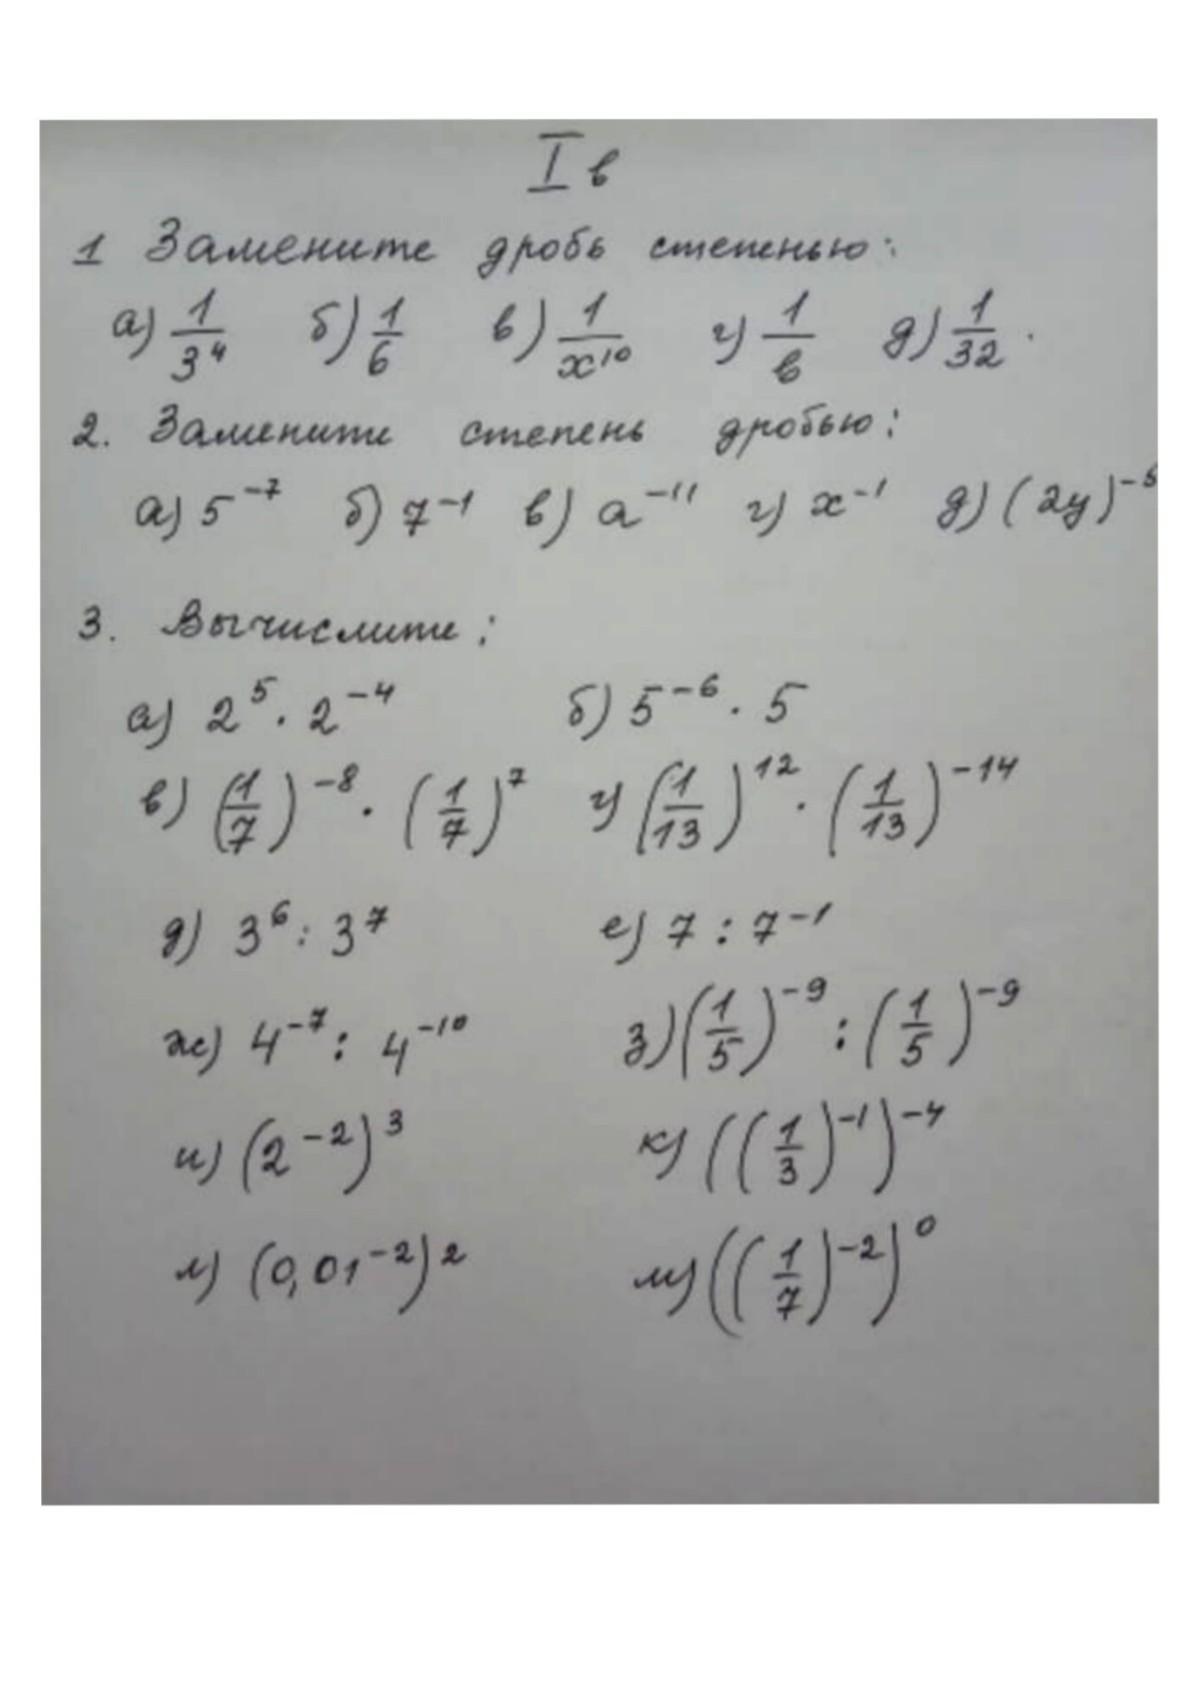 I в
1 Замените дробь степенью:
а) 1/3⁴ б) 1/6 в) 1/x¹⁰ г) 1/в д) 1/32.
2. Замените степень дробью:
а) 5⁻⁷ б) 7⁻¹ в) a⁻¹¹ г) x⁻¹ д) (2y)⁻⁵
3. Вычислите:
а) 2⁵ · 2⁻⁴ б) 5⁻⁶ · 5
в) (1/7)⁻⁸ · (1/7)⁷ г) (1/13)¹² · (1/13)⁻¹⁴
д) 3⁶ : 3⁷ е) 7 : 7⁻¹
ж) 4⁻⁷ : 4⁻¹⁰ з) (1/5)⁻⁹ : (1/5)⁻⁹
и) (2⁻²)³ к) ((1/3)⁻¹)⁻⁴
л) (0,01⁻²)² м) ((1/7)⁻²)⁰